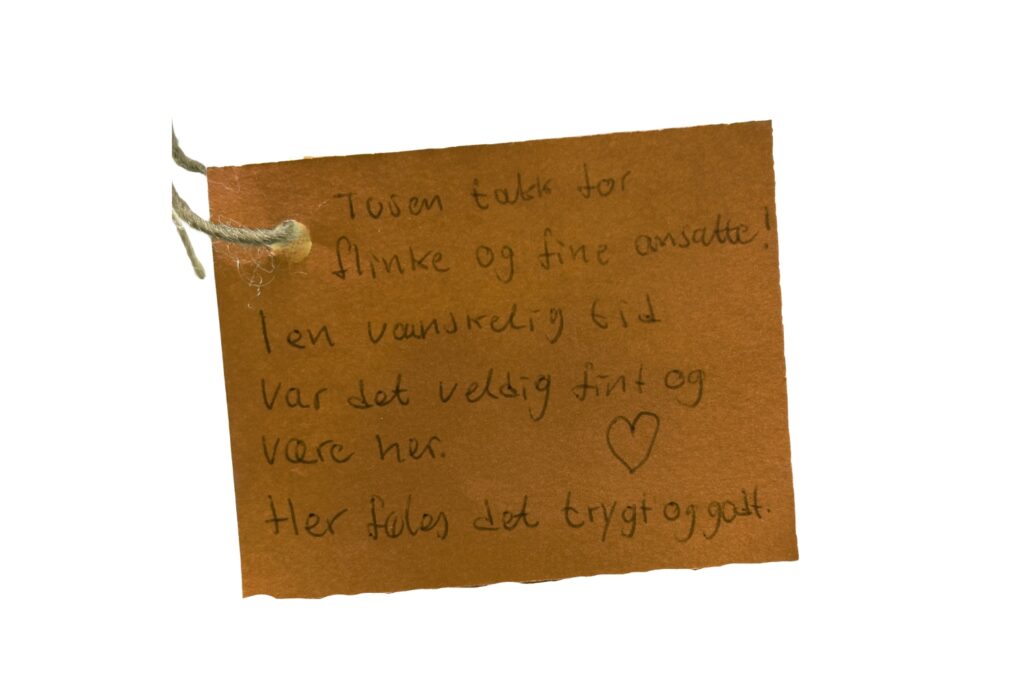 Tusen takk for
flinke og fine ansatte!
I en vanskelig tid
var det veldig fint og
være her.
Her føles det trygt og godt.